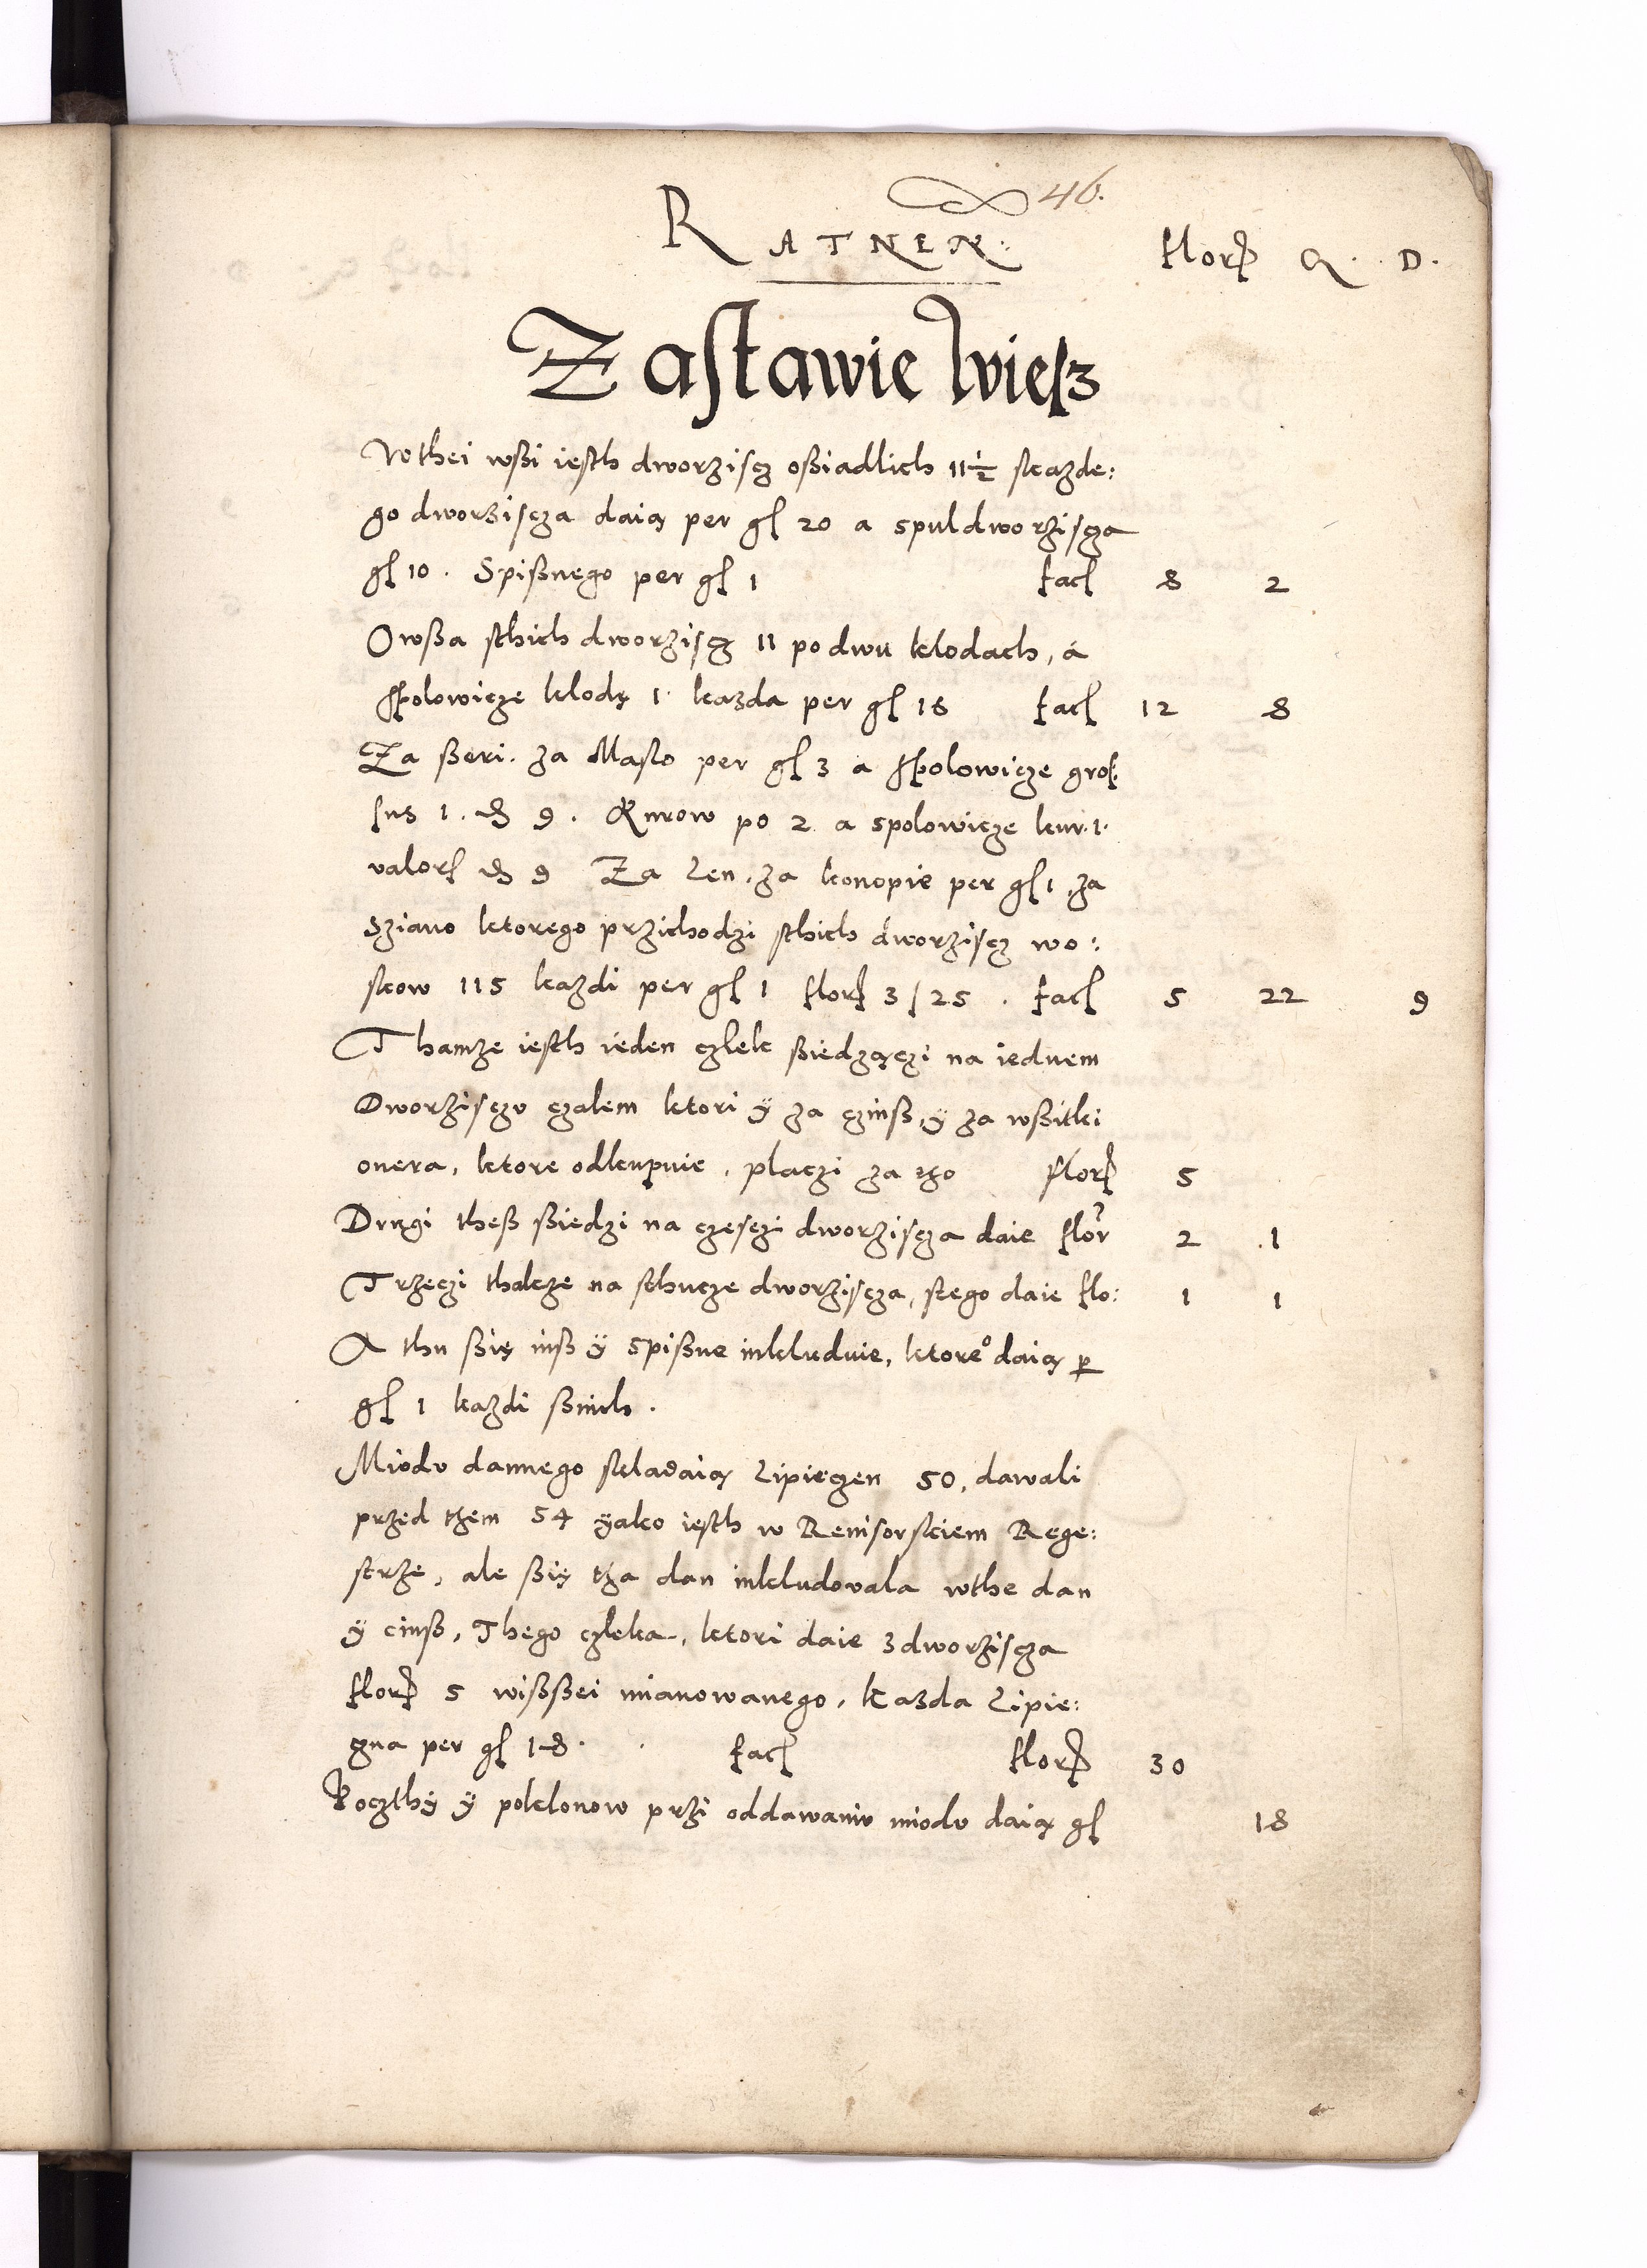 46.
RATNEN: flor G. D.
Zastawie wiesz
Wthei wßi iesth dworziscz oßiadlich 11½ skazde:
go dworziscza daią per gl 20 a spuldworziscza
gl 10. Spißnego per gl 1 facl 8 2
Owßa sthich dworziscz 11 po dwu klodach, á
spolowicze klodę 1 kazda per gl 16 facl 12 8
Za ßeri. za Maslo per gl 3 a spolowicze gros
sus 1. 9. Kurow po 2 a spolowicze kur. 1.
valorl 9 Za len, za konopie per gl 1, za
Sziano ktorego przichodzi sthich dworziscz wo:
skow 115 kazdi per gl 1 flor 3/25. facl 5 22 9
Thamze iesth ieden czlek ßiedzączi na iednem
Dworzisczu czalem ktori ÿ za czinß, ÿ za wßitki
onera, ktore odkupuie, placzi za tho flor 5
Drugi theß ßiedzi na czesczi dworziscza daie flor 2 1
Trzeczi thakze na sthucze dworziscza, stego daie flo: 1 1
A thu ßię inß ÿ spißne inkluduie, ktore° daią p
gl 1 kazdi ßnich.
Miodu dannego skladaią lipieczen 50, dawali
przed them 54 ÿako iesth w Reuisorskiem Rege:
strze, ale ßię tha dan inkludovala wthe dan
ÿ cinß, Thego czleka, ktori daie z dworziscza
flor 5 wißßei mianowanego, kazda lipie:
czna per gl 18. facl flor 30
Poczthÿ ÿ poklonow przi oddawaniu miodu daią gl 18